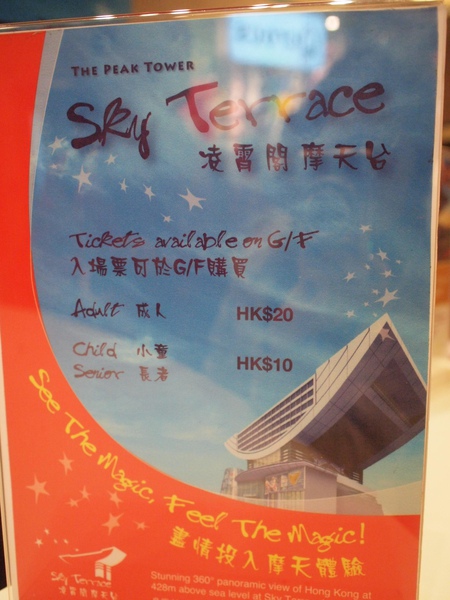 THE PEAK TOWER
Sky Terrace
凌霄閣摩天台
Tickets available on G/F
入場票可於G/F購買
Adult 成人 HK$20
Child 小童
Senior 長者
HK$10
See The Magic, Feel The Magic!
盡情投入摩天體驗
Sky Terrace
凌霄閣摩天台
Stunning 360° panoramic view of Hong Kong at
428m above sea level at Sky